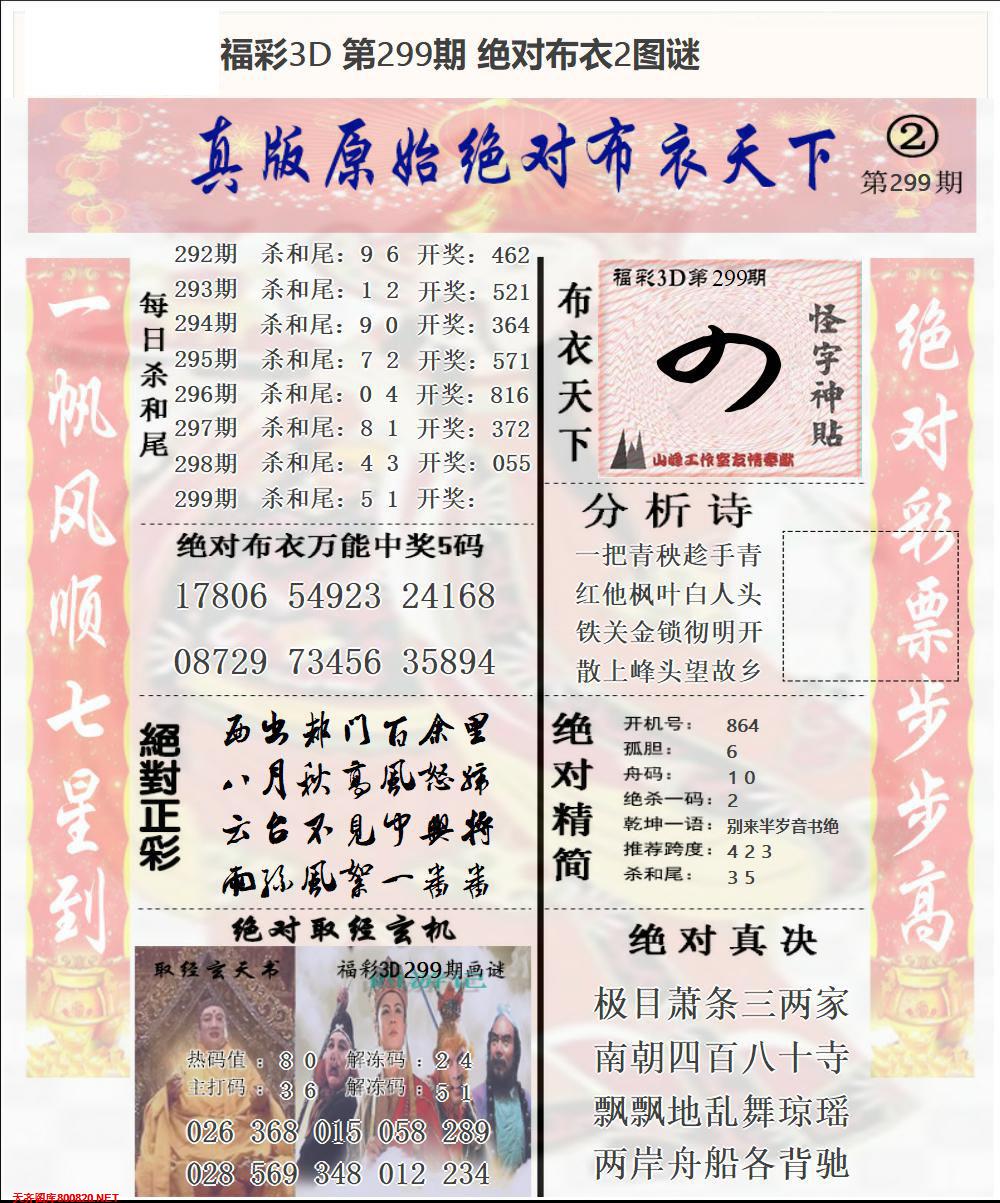 福彩3D 第299期 绝对布衣2图谜
真版原始绝对布衣天下
②
第299期
一帆风顺七星到
每日杀和尾
292期 杀和尾：9 6 开奖：462
293期 杀和尾：1 2 开奖：521
294期 杀和尾：9 0 开奖：364
295期 杀和尾：7 2 开奖：571
296期 杀和尾：0 4 开奖：816
297期 杀和尾：8 1 开奖：372
298期 杀和尾：4 3 开奖：055
299期 杀和尾：5 1 开奖：
绝对布衣万能中奖5码
17806 54923 24168
08729 73456 35894
絕對正彩
西出都门百余里
八月秋高風怒號
云台不見中興将
雨絲風絮一番番
绝对取经玄机
取经玄天书
福彩3D299期画谜
热码值：8 0 解冻码：2 4
主打码：3 6 解冻码：5 1
026 368 015 058 289
028 569 348 012 234
布衣天下
福彩3D第299期
の
怪字神貼
山峰工作室友情奉献
分析诗
一把青秧趁手青
红他枫叶白人头
铁关金锁彻明开
散上峰头望故乡
绝对精简
开机号：864
孤胆：6
舟码：1 0
绝杀一码：2
乾坤一语：别来半岁音书绝
推荐跨度：4 2 3
杀和尾：3 5
绝对真决
极目萧条三两家
南朝四百八十寺
飘飘地乱舞琼瑶
两岸舟船各背驰
绝对彩票步步高
天齐图库800820.NET